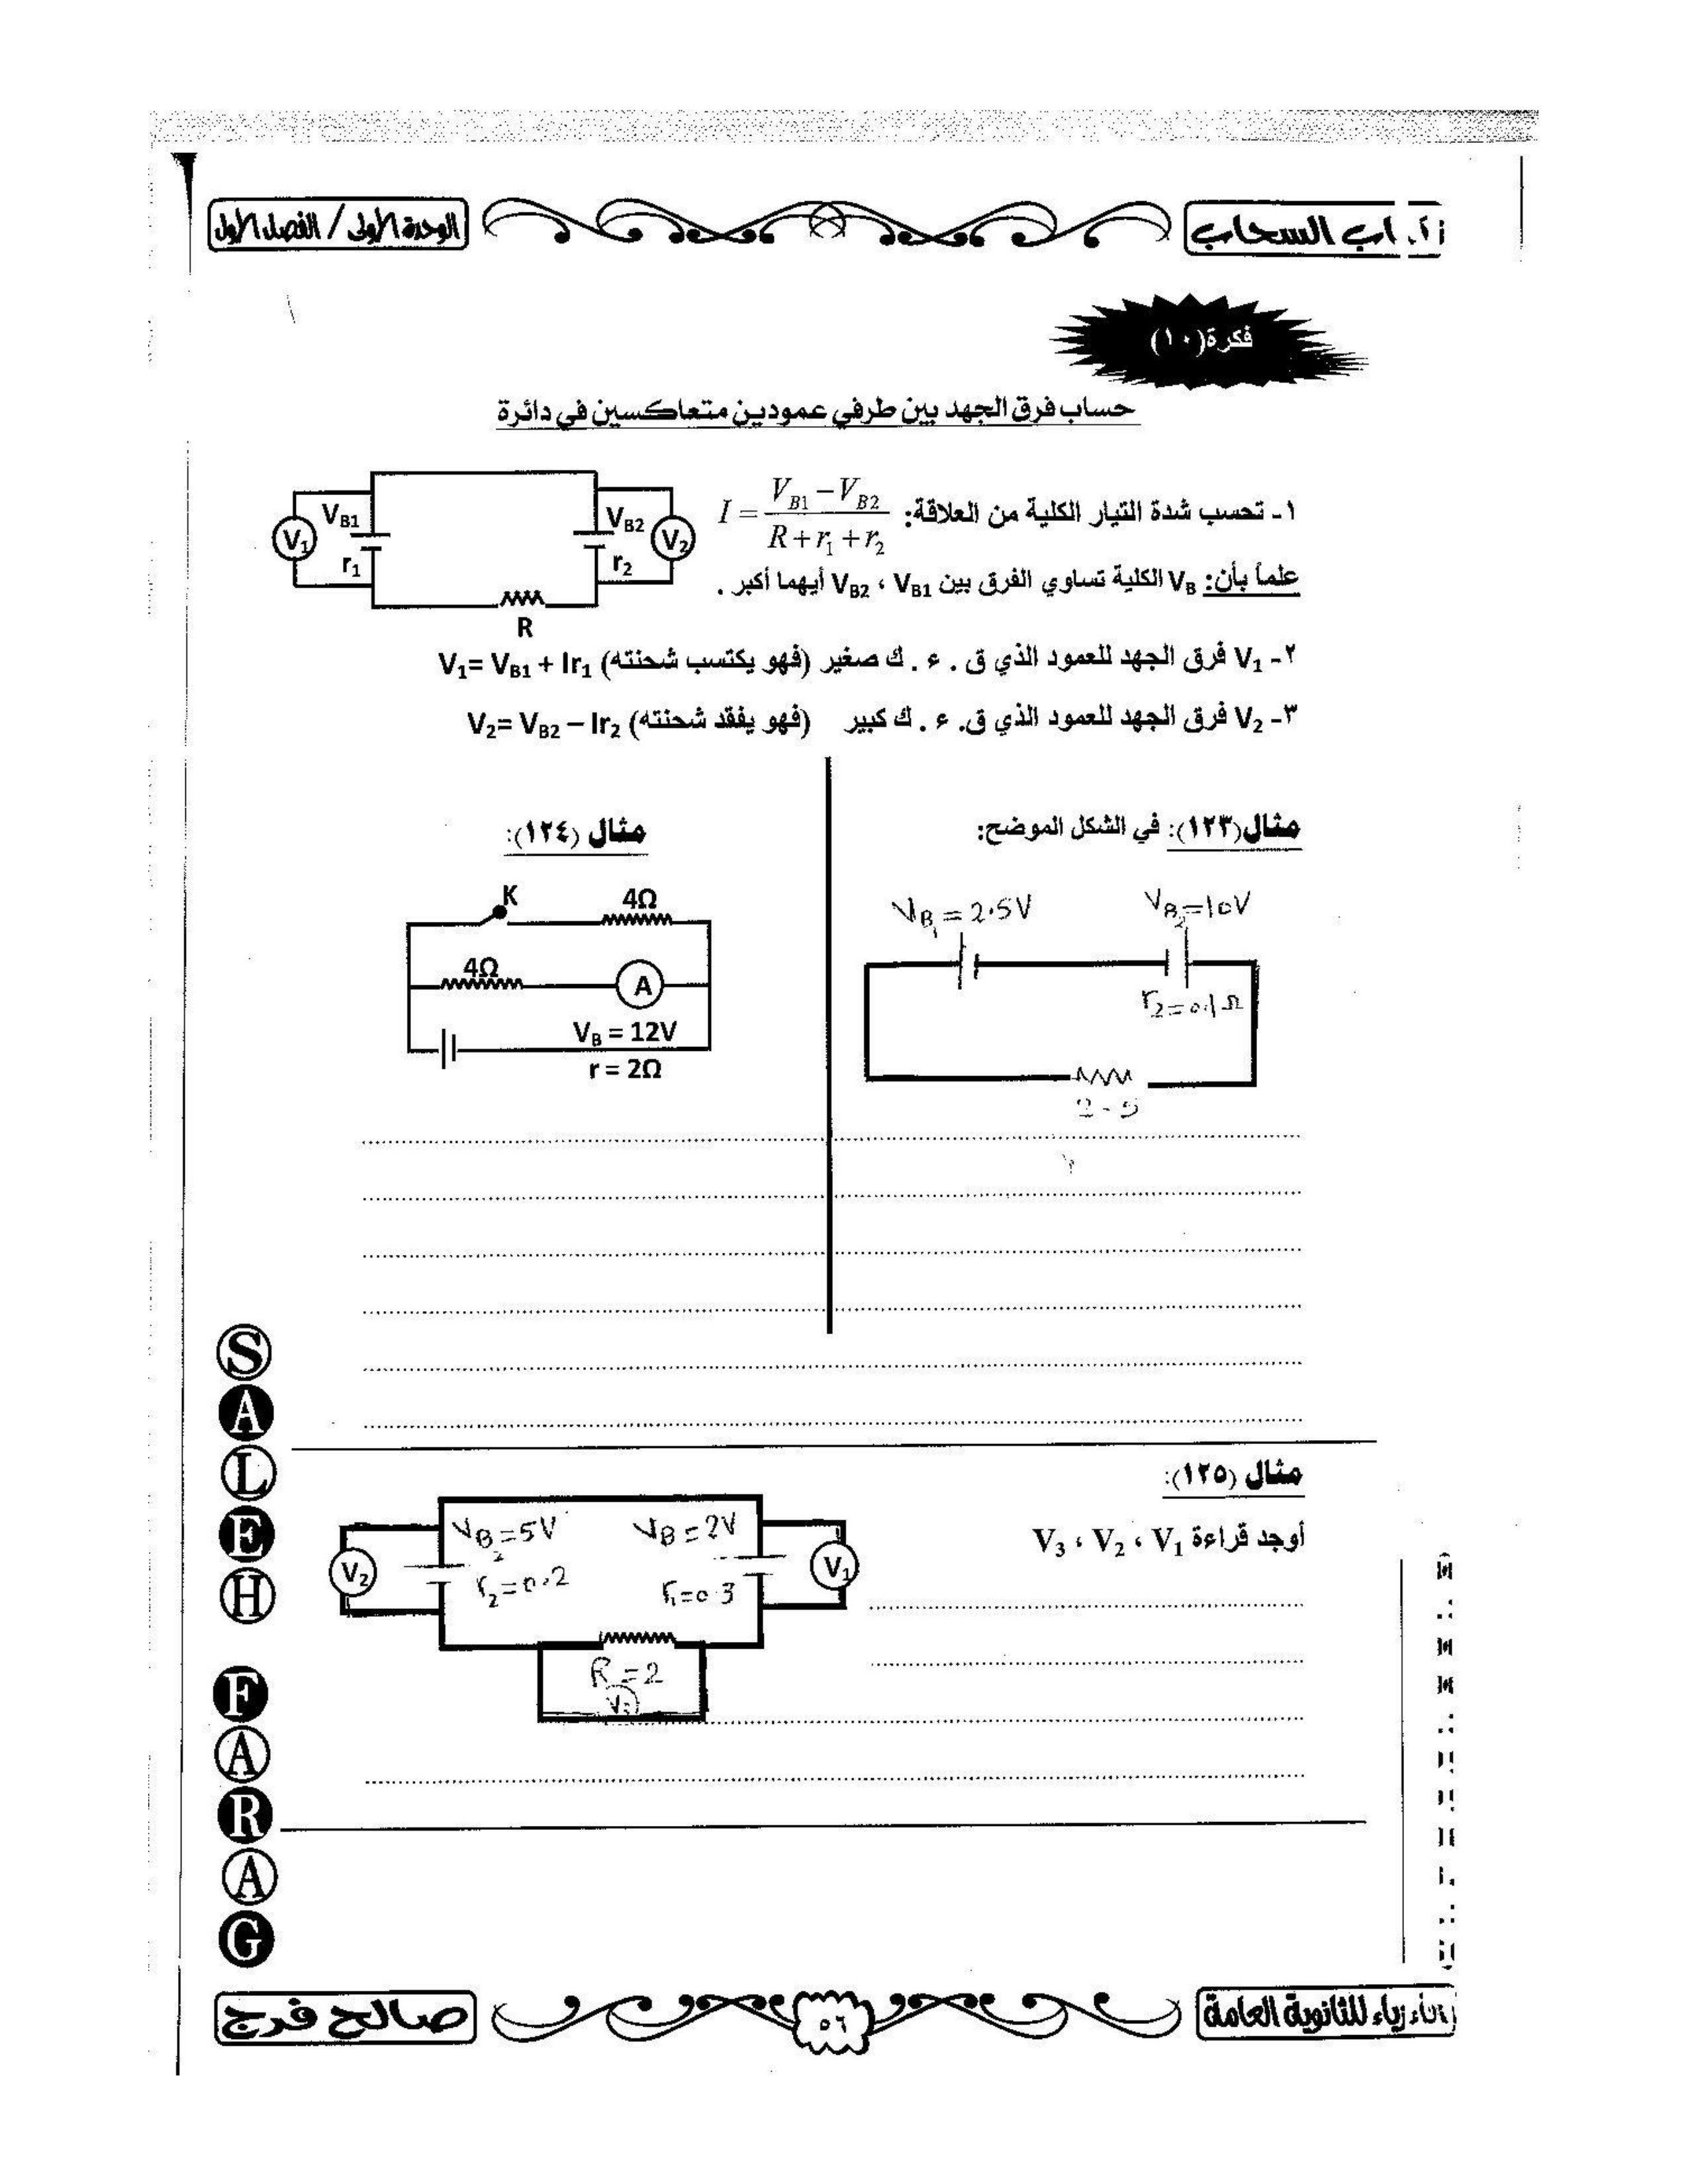 الوحدة الأولى / الفصل الأول
السحاب
فكرة(١٠)
حساب فرق الجهد بين طرفي عمودين متعاكسين في دائرة
V1 VB1 r1 VB2 r2 V2 R
١- تحسب شدة التيار الكلية من العلاقة: I = (VB1 - VB2) / (R + r1 + r2)
علماً بأن: VB الكلية تساوي الفرق بين VB1 ، VB2 أيهما أكبر .
٢- V1 فرق الجهد للعمود الذي ق . ء . ك صغير (فهو يكتسب شحنته) V1= VB1 + Ir1
٣- V2 فرق الجهد للعمود الذي ق. ء . ك كبير (فهو يفقد شحنته) V2= VB2 – Ir2
مثال(١٢٣): في الشكل الموضح:
VB1 = 2.5V
VB2 = 10V
r2 = 0.1Ω
2-5
مثال (١٢٤):
K 4Ω
4Ω A
VB = 12V
r = 2Ω
مثال (١٢٥):
أوجد قراءة V1 ، V2 ، V3
VB2 = 5V VB = 2V
V2 r2 = 0.2 r1 = 0.3 V1
R = 2
V3
SALEH FARAG
صالح فرج
٥٦
للثانوية العامة